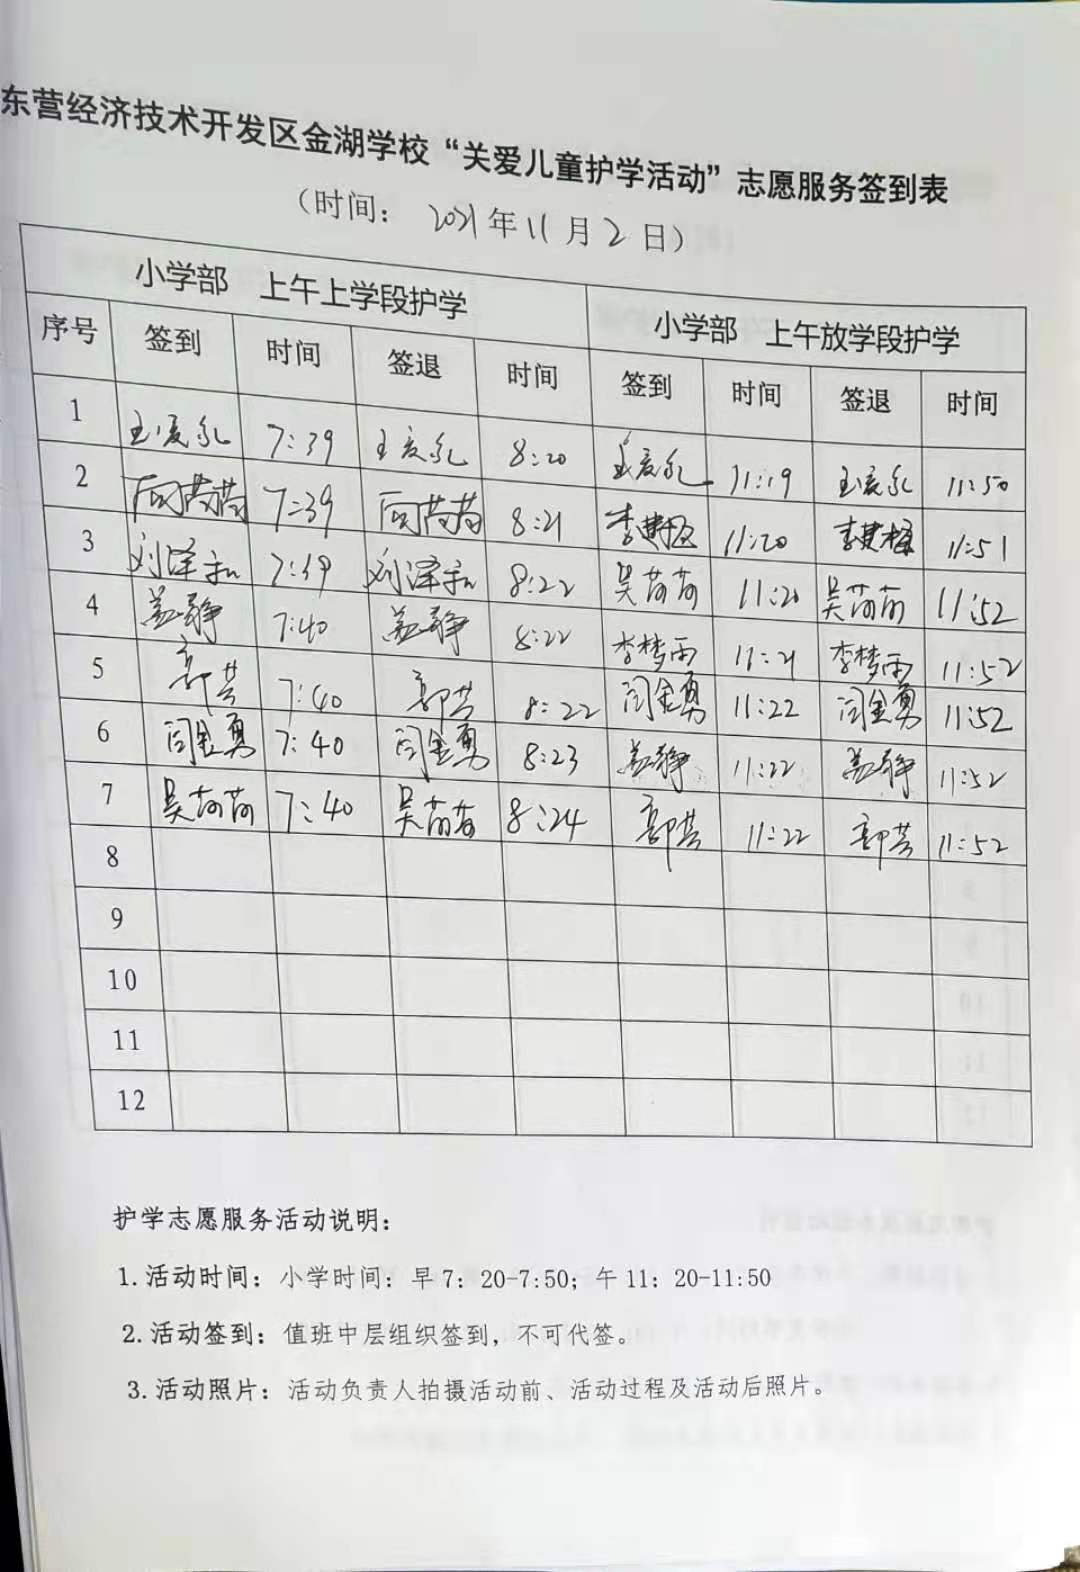 东营经济技术开发区金湖学校“关爱儿童护学活动”志愿服务签到表
（时间： 2021年11月2日）
小学部 上午上学段护学 小学部 上午放学段护学
序号 签到 时间 签退 时间 签到 时间 签退 时间
1 7:39 8:20 11:19 11:50
2 7:39 8:21 11:20 11:51
3 刘泽和 7:39 刘泽和 8:22 吴苘苘 11:20 吴苘苘 11:52
4 盖静 7:40 盖静 8:22 李梦雨 11:21 李梦雨 11:52
5 郭芸 7:40 郭芸 8:22 闫金勇 11:22 闫金勇 11:52
6 闫金勇 7:40 闫金勇 8:23 盖静 11:22 盖静 11:52
7 吴苘苘 7:40 吴苘苘 8:24 郭芸 11:22 郭芸 11:52
8
9
10
11
12
护学志愿服务活动说明：
1.活动时间：小学时间：早7：20-7:50；午11：20-11:50
2.活动签到：值班中层组织签到，不可代签。
3.活动照片：活动负责人拍摄活动前、活动过程及活动后照片。